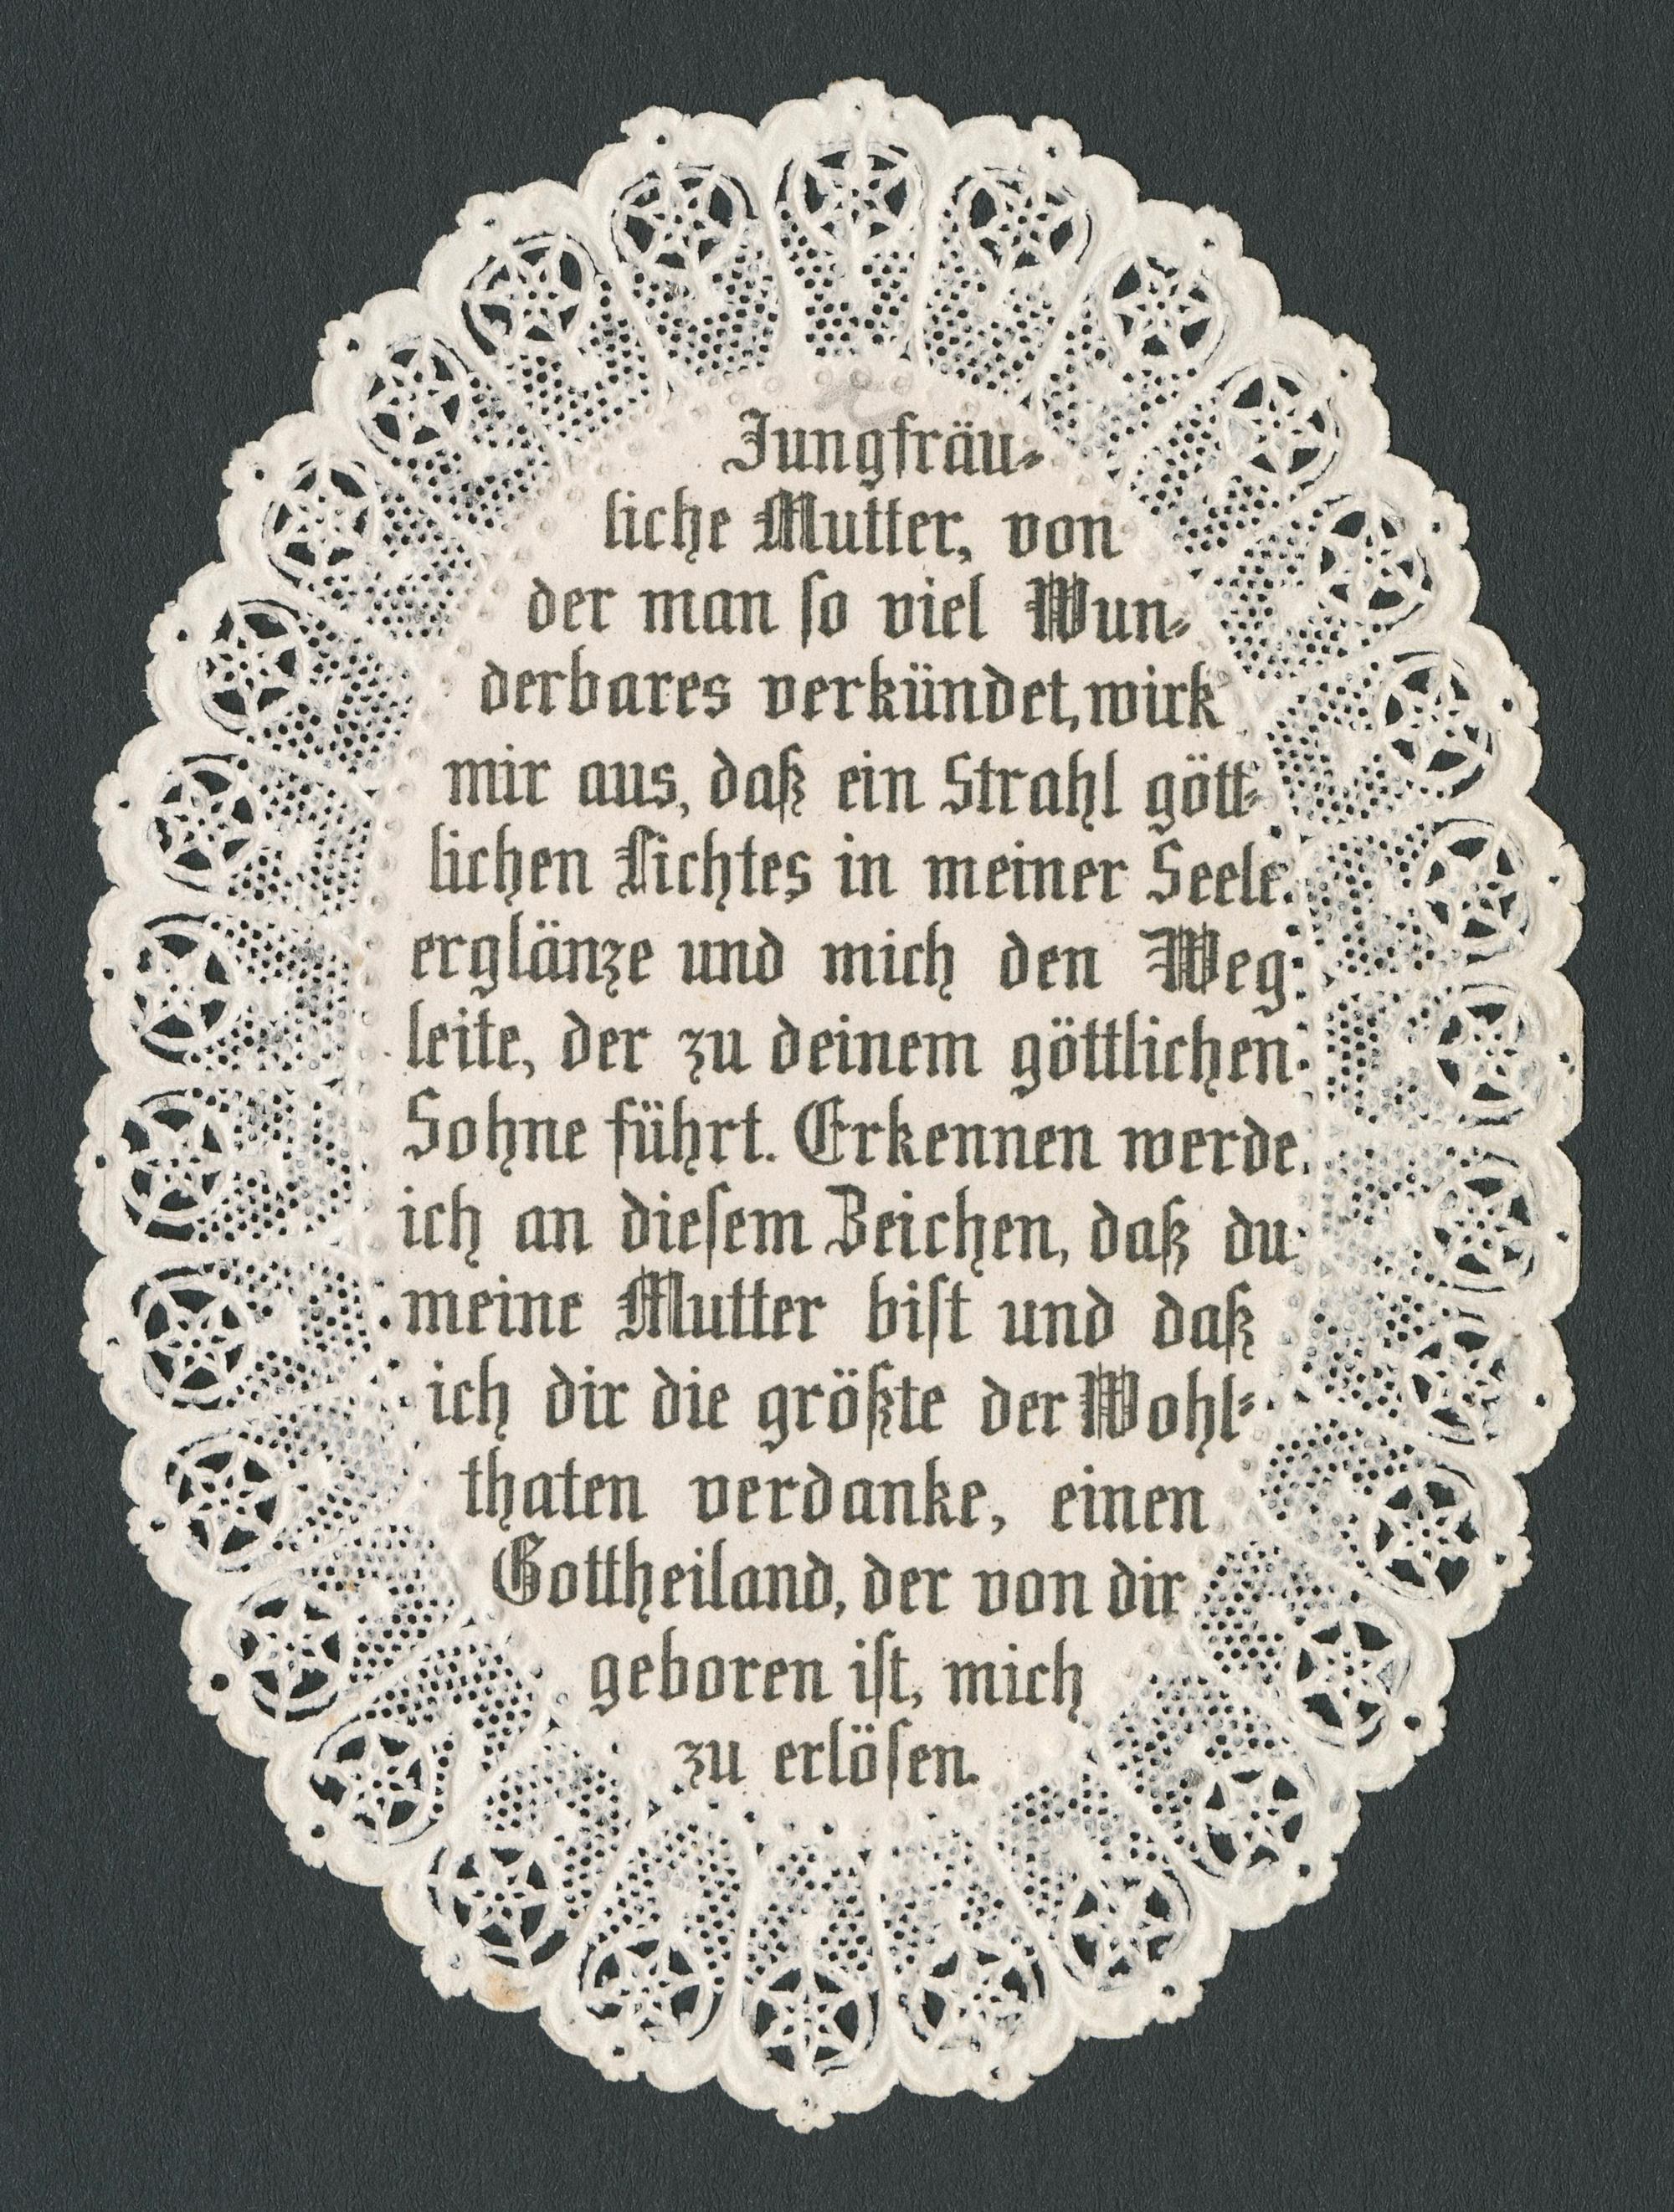 Jungfräu-
liche Mutter, von
der man so viel Wun-
derbares verkündet, wirk
mir aus, daß ein Strahl gött-
lichen Lichtes in meiner Seele
erglänze und mich den Weg
leite, der zu deinem göttlichen
Sohne führt. Erkennen werde
ich an diesem Zeichen, daß du
meine Mutter bist und daß
ich dir die größte der Wohl-
thaten verdanke, einen
Gottheiland, der von dir
geboren ist, mich
zu erlösen.